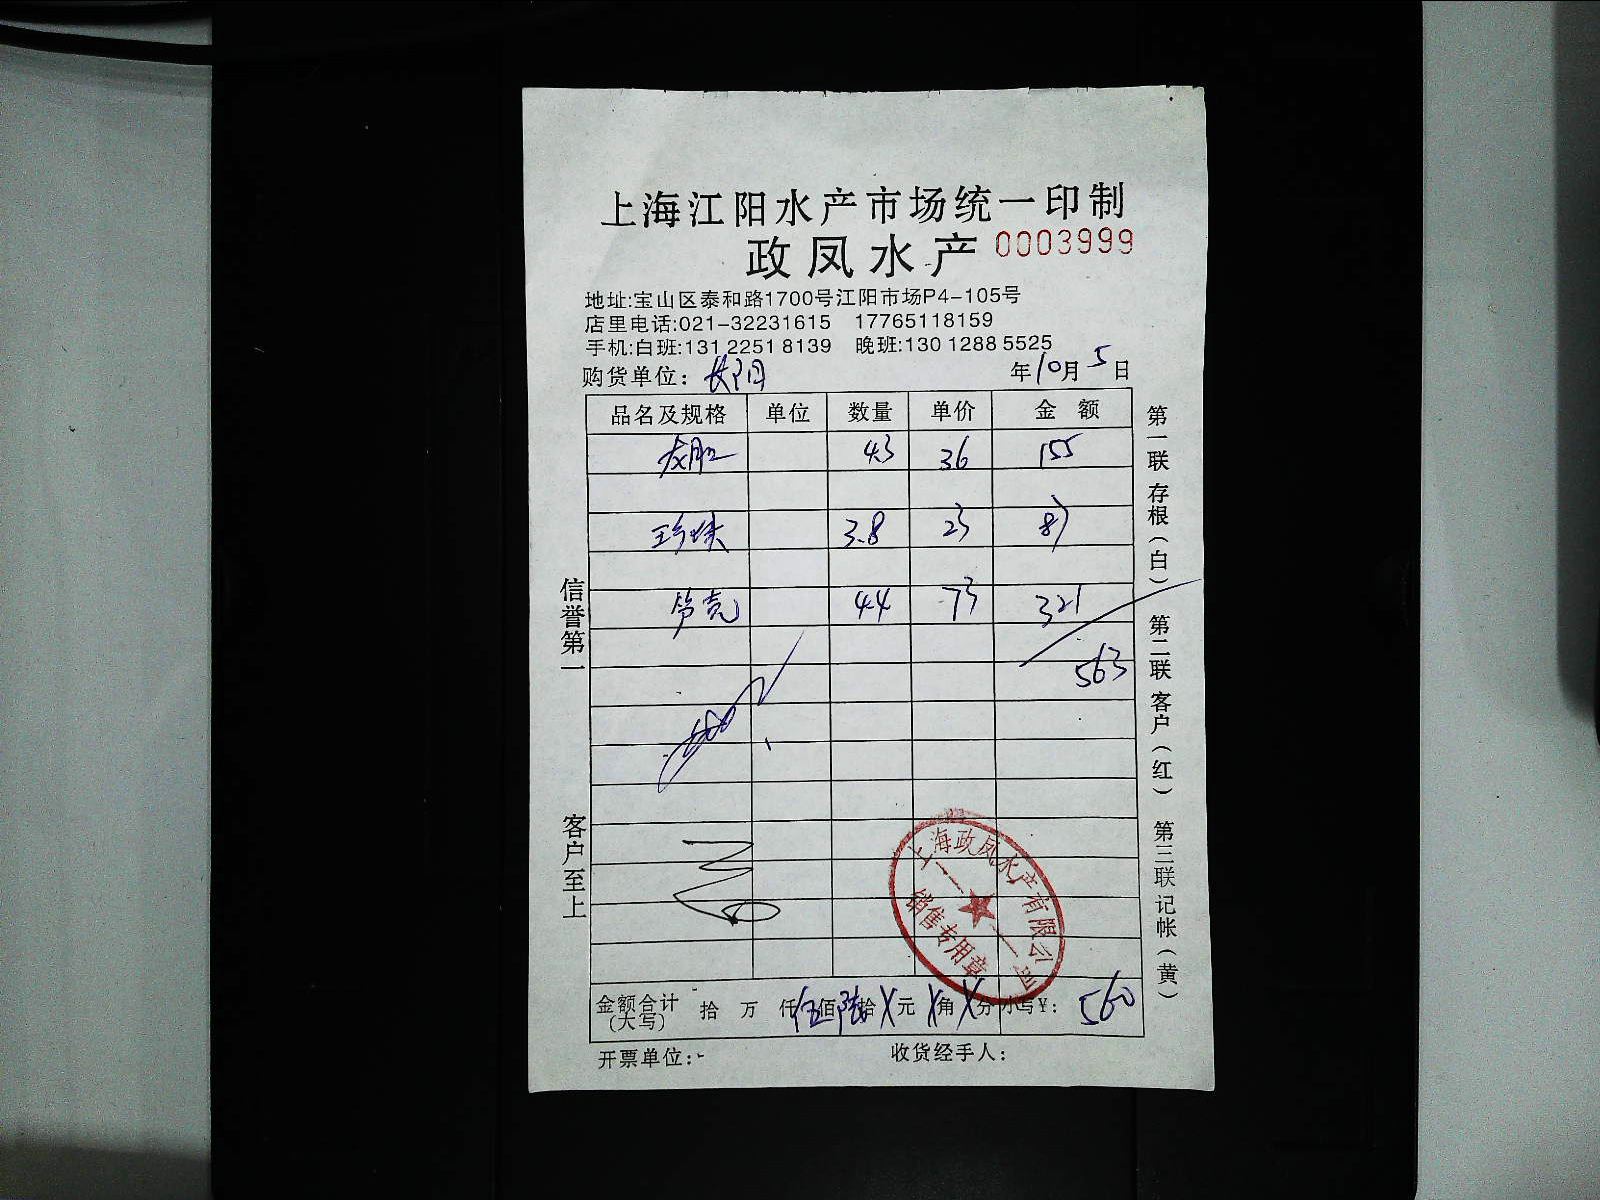 上海江阳水产市场统一印制
政凤水产 0003999
地址:宝山区泰和路1700号江阳市场P4-105号
店里电话:021-32231615 17765118159
手机:白班:131 2251 8139 晚班:130 1288 5525
购货单位: 长阳 年10月5日
品名及规格 单位 数量 单价 金额
4.3 36 155
珍珠 3.8 23 87
笋壳 4.4 73 321
563
金额合计(大写) 拾 万 仟 伍佰 陆拾 X元 X角 X分 小写¥: 560
开票单位: 收货经手人:
信誉第一 客户至上
第一联存根(白) 第二联客户(红) 第三联记帐(黄)
上海政凤水产有限公司
销售专用章